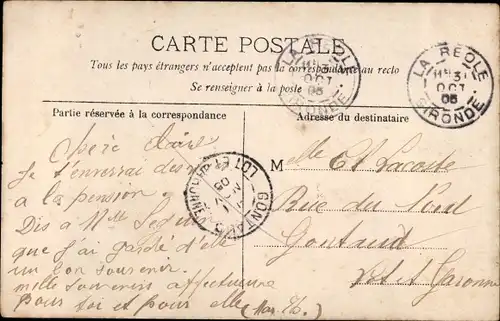 CARTE POSTALE
Tous les pays étrangers n'acceptent pas la correspondance au recto
Se renseigner à la poste
LA REOLE
31
OCT
05
GIRONDE
LA REOLE
31
OCT
05
GIRONDE
Partie réservée à la correspondance
Adresse du destinataire
Chère
Je t'enverrai des
à la pension
Dis à Melle
que j'ai gardé d'elle
un bon souvenir.
mille souvenirs affectueux
pour toi et pour elle (
LOT ET GARONNE
GONTAUD
05
Melle Lacoste
Rue du
Gontaud
Lot et Garonne